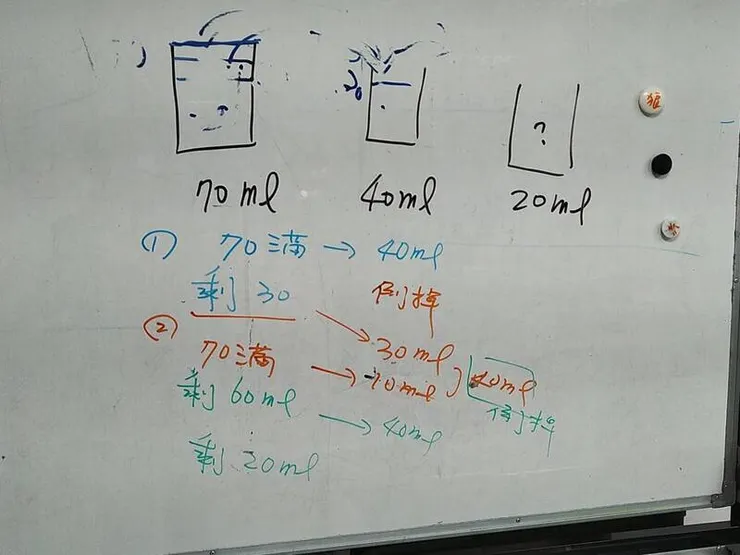 20
?
70ml 40ml 20ml
① 70滿 → 40ml
剩 30 倒掉
② 30ml
70滿 → 10ml 40ml
剩 60ml → 40ml 倒掉
剩 20ml